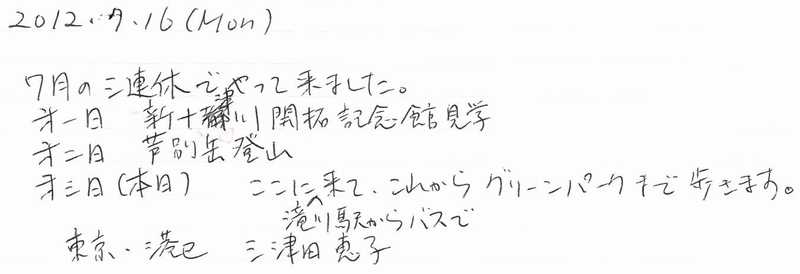 2012.7.16 (Mon)
7月の三連休でやって来ました。
才一日 新十津川開拓記念館見学
才二日 芦別岳登山
才三日(本日) ここに来て、これからグリーンパークまで歩きます。
滝川駅からバスで
東京・港区 三津田恵子